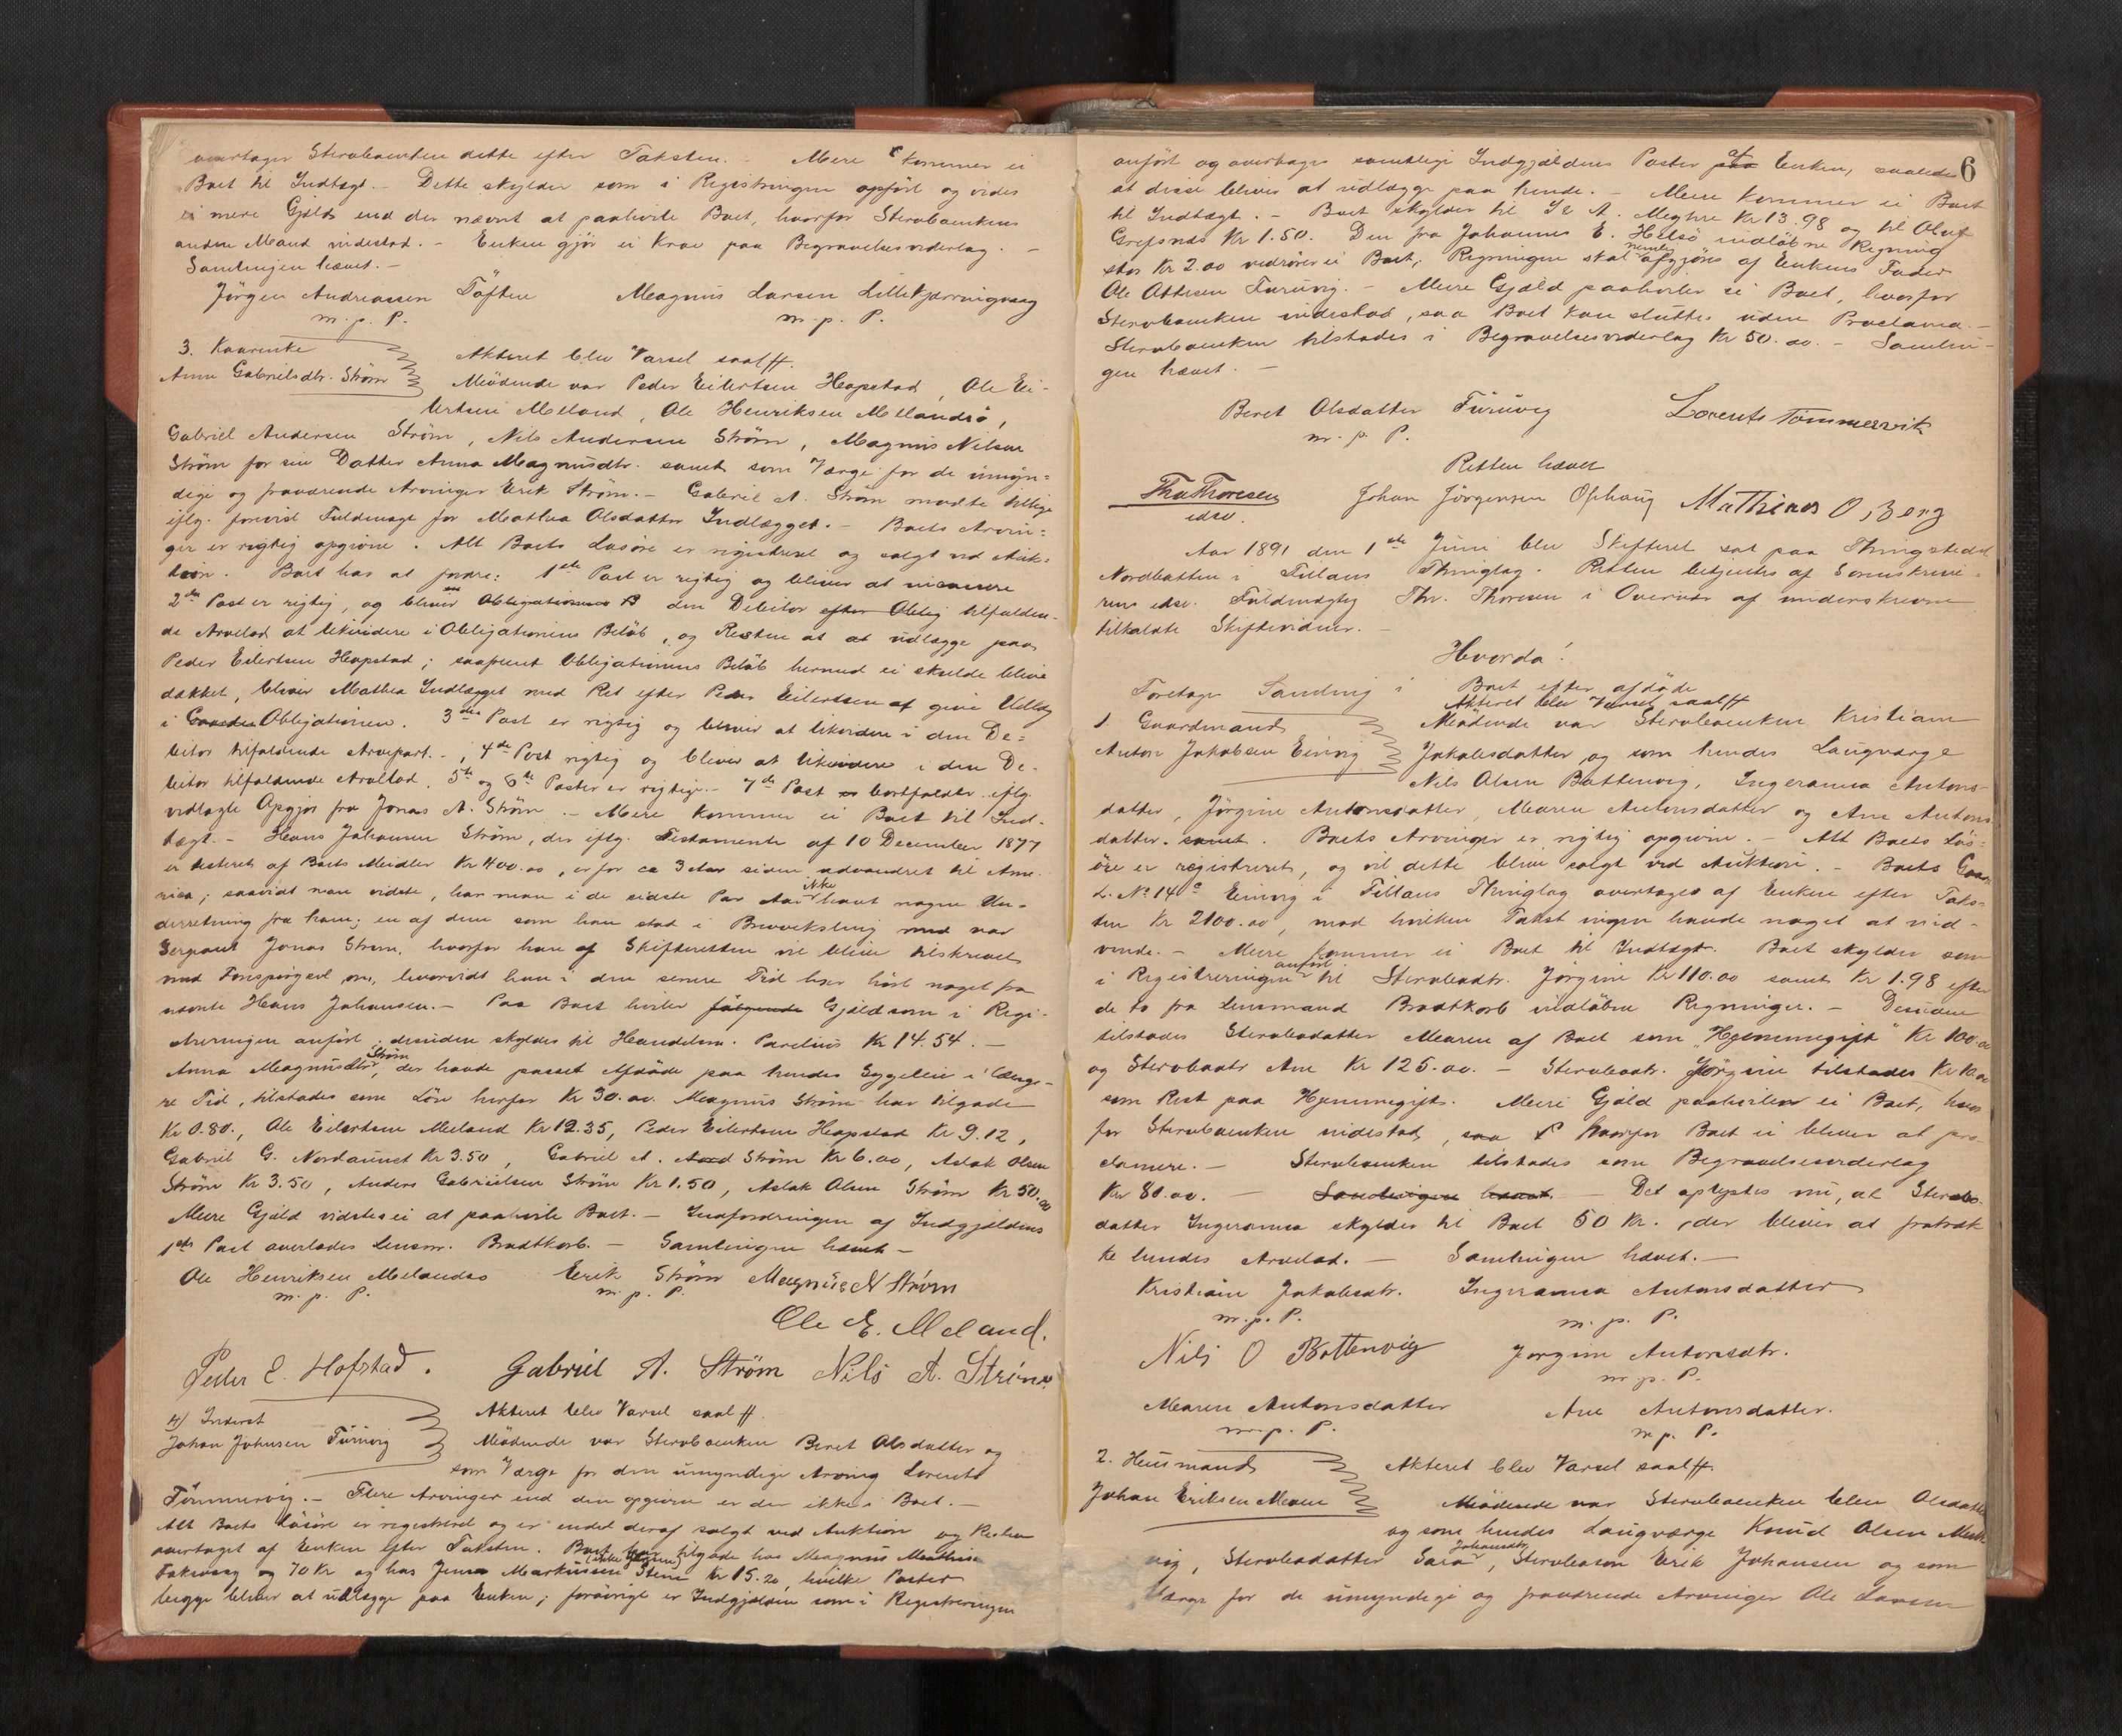 overtager Stervboenken dette efter Taksten. Mere kommer ei
Boet til Indtægt. – Dette skylder som i Registringen opført og vides
ei mere Gjæld end der nævnt at paahvile Boet, hvorfor Stervboenkens
anden Mand indestod. – Enken gjør ei Krav paa Begravelsesvederlag. –
Samlingen hævet. –
Jörgen Andreassen Töften Magnus Larsen Lillekjærringvaag
m. p. P. m. p. P.
3. Kaarenke
Anne Gabrielsdtr. Strøm
Akteret blev Varsel saal ff.
Mödende var Peder Eilertsen Hopstad, Ole Ei-
lertsen Meland, Ole Henriksen Melandsö,
Gabriel Andersen Strøm, Nils Andersen Strøm, Magnus Nilsen
Strøm for sin Datter Anna Magnusdtr. samt som Værge for de umyn=
dige og fraværende Arvinger Erik Strøm. – Gabriel A. Strøm mødte tillige
iflg. forevist Fuldmagt for Mathea Olsdatter Indlægget. – Boets Arvin=
ger er rigtig opgivne. Alt Boets Løsøre er registreret og solgt ved Auk=
tion. Boet har at fordre: 1ste Post er rigtig og bliver at
2den Post er rigtig, og bliver Obligationens B den Debitor efter Oblig tilfalden-
de Arvelod at likvidere i Obligationens Beløb, og Resten at at udlægge paa
Peder Eilertsen Hopstad; saafremt Obligationens Beløb hermed ei skulde blive
dækket, bliver Mathea Indlægget med Ret efter Peder Eilertsen at give Udlæg
i Obligationen. 3die Post er rigtig og bliver at likvidere i den De=
bitor tilfaldende Arvepart. –, 4de Post rigtig og bliver at likvidere i den De-
bitor tilfaldende Arvelod. 5te og 6te Poster er rigtige. – 7de Post er bortfalder iflg.
vedlagte Opgjør fra Jonas A. Strøm. – Mere kommer ei Boet til Ind-
tægt. – Hans Johansen Strøm, der iflg. Testamente af 10 December 1877
er testeret af Boets Midler Kr 400.00, er for ca 3 Aar siden udvandret til Ame-
rica; saavidt man vidste, har man i de sidste Par Aar ikke havt nogen Un-
derretning fra ham; en af dem som han stod i Brevveksling med var
Sergeant Jonas Strøm, hvorfor han af Skifteretten vil blive tilskrevet
med Forespørgsel om, hvorvidt han i den senere Tid har hört noget fra
nævnte Hans Johansen. – Paa Boet hviler følgende Gjæld som i Regi-
streringen anført, desuden skyldes til Handelsm. Parelius Kr 14.54. –
Anna Magnusdtr Strøm, der havde passet Afdöde paa hendes Sygeleie i længe-
re Tid, tilstodes som Lön herfor Kr 30.00. Magnus Strøm har tilgode
Kr 0.80., Ole Eilertsen Meland Kr 12.35, Peder Eilertsen Hopstad Kr 9.12,
Gabriel G. Nordaunet Kr 3.50, Gabriel A. Strøm Kr 6.00, Aslak Olsen
Strøm Kr 3.50, Anders Gabrielsen Strøm Kr 1.50, Aslak Olsen Strøm Kr 50.00
Mere Gjæld vidstes ei at paahvile Boet. – Indfordringen af Indgjældens
1ste Post overlodes Lensm. Brodtkorb. – Samlingen hævet –
Ole Henriksen Melandsö Erik Strøm Magnus N Strøm
m. p. P. m. p. P.
Ole E. Meland.
Peder E. Hofstad. Gabriel A. Ström Nils A. Ström
4) Inderst
Johan Johnsen Furuvig
Akteret blev Varsel saal ff.
Mödende var Stervboenken Beret Olsdatter og
som Værge for den umyndige Arving Lorents
Tömmervig. – Flere Arvinger end den opgivne er der ikke i Boet. –
Alt Boets Lösöre er registreret og er endel deraf solgt ved Auktion og Resten
overtaget af Enken efter Taksten. Boet har tilgode hos Magnus Mathisen
Faksvaag og 70 Kr og hos Jens Markussen Stene Kr 15.20, hvilke Poster
begge bliver at udlægge paa Enken; forövrigt er Indgjælden som i Registreringen
6
anfört og overtages samtlige Indgjældens Poster paa af Enken, saaledes
at disse bliver at udlægge paa hende. – Mere kommer ei Boet
til Indtægt. – Boet skylder til I & A. Meyhre Kr 13.98 og til Oluf
Grefsnæs Kr 1.50. Den fra Johannes E. Helsö indlöbne Regning
stor Kr 2.00 vedrører ei Boet; Regningen skal nemlig afgjøres af Enkens Fader
Ole Ottesen Furuvig. – Mere Gjæld paahviler ei Boet, hvorfor
Stervboenken indestod, saa Boet kan sluttes uden Proclama. –
Stervboenken tilstodes i Begravelsesvederlag Kr 50.00. – Samlin-
gen hævet. –
Beret Olsdatter Furuvig Lorents Tömmervik
m. p. P.
Retten hævet
Thv Thoresen Johan Jörgensen Ophaug Mathias O. Berg
edsv.
Aar 1891 den 1ste Juni blev Skifteret sat paa Thingstedet
Nordbotten i Fillans Thinglag. Retten betjentes af Sorenskrive-
rens edsv. Fuldmægtig Thv. Thoresen i Overvær af underskrevne
tilkaldte Skiftevidner. –
Hvorda!
Foretoges Samling i Boet efter afdöde
Akteret blev Varsel saal ff
1. Gaardmand
Anton Jakobsen Einvig
Mödende var Stervboenken Kristiane
Jakobsdatter og som hendes Laugværge
Nils Olsen Bottenvig, Ingeranna Antons-
datter, Jörgine Antonsdatter, Maren Antonsdatter og Ane Antons-
datter. samt. Boets Arvinger er rigtig opgivne. – Alt Boets Lös=
öre er registreret, og vil dette blive solgt ved Auktion. – Boets Gaard
L. No 14c Einvig i Fillans Thinglag overtages af Enken efter Taks-
ten Kr 2100.00, mod hvilken Takst ingen havde noget at ind-
vende. – Mere kommer ei Boet til Indtægt. Boet skylder som
i Registreringen anfört til Stervbodtr. Jörgine Kr 110.00 samt Kr 1.98 efter
de to fra Lensmand Brodtkorb indløbne Regninger. – Desuden
tilstodes Stervbodatter Maren af Boet som "Hjemmegift" Kr 100.00
og Stervbodtr Ane Kr 125.00. – Stervbodtr. Jörgine tilstodes Kr
som Rest paa Hjemmegift. Mere Gjæld paahviler ei Boet, hvor
for Stervboenken indestod, saa hvorfor Boet ei bliver at pro
clamere. – Stervboenken tilstodes som Begravelsesvederlag
Kr 80.00. – Samlingen hævet. – Det oplystes nu, at Stervbo-
datter Ingeranna skylder til Boet 50 Kr., der bliver at fratræk
ke hendes Arvelod. – Samlingen hævet. –
Kristiane Jakobsdtr. Ingeranna Antonsdatter
m. p. P. m. p. P.
Nils O Bottenvig Jörgine Antonsdtr.
m. p. P.
Maren Antonsdatter Ane Antonsdatter.
m. p. P. m. p. P.
2. Huusmand
Johan Eriksen Meen
Akteret blev Varsel saal ff.
Mödende var Stervboenken Elen Olsdatter
og som hendes Laugværge Knud Olsen
vig, Stervbodatter Sara Johansdtr, Stervboesön Erik Johansen og som
Værge for de umyndige og fraværende Arvinger Ole Larsen